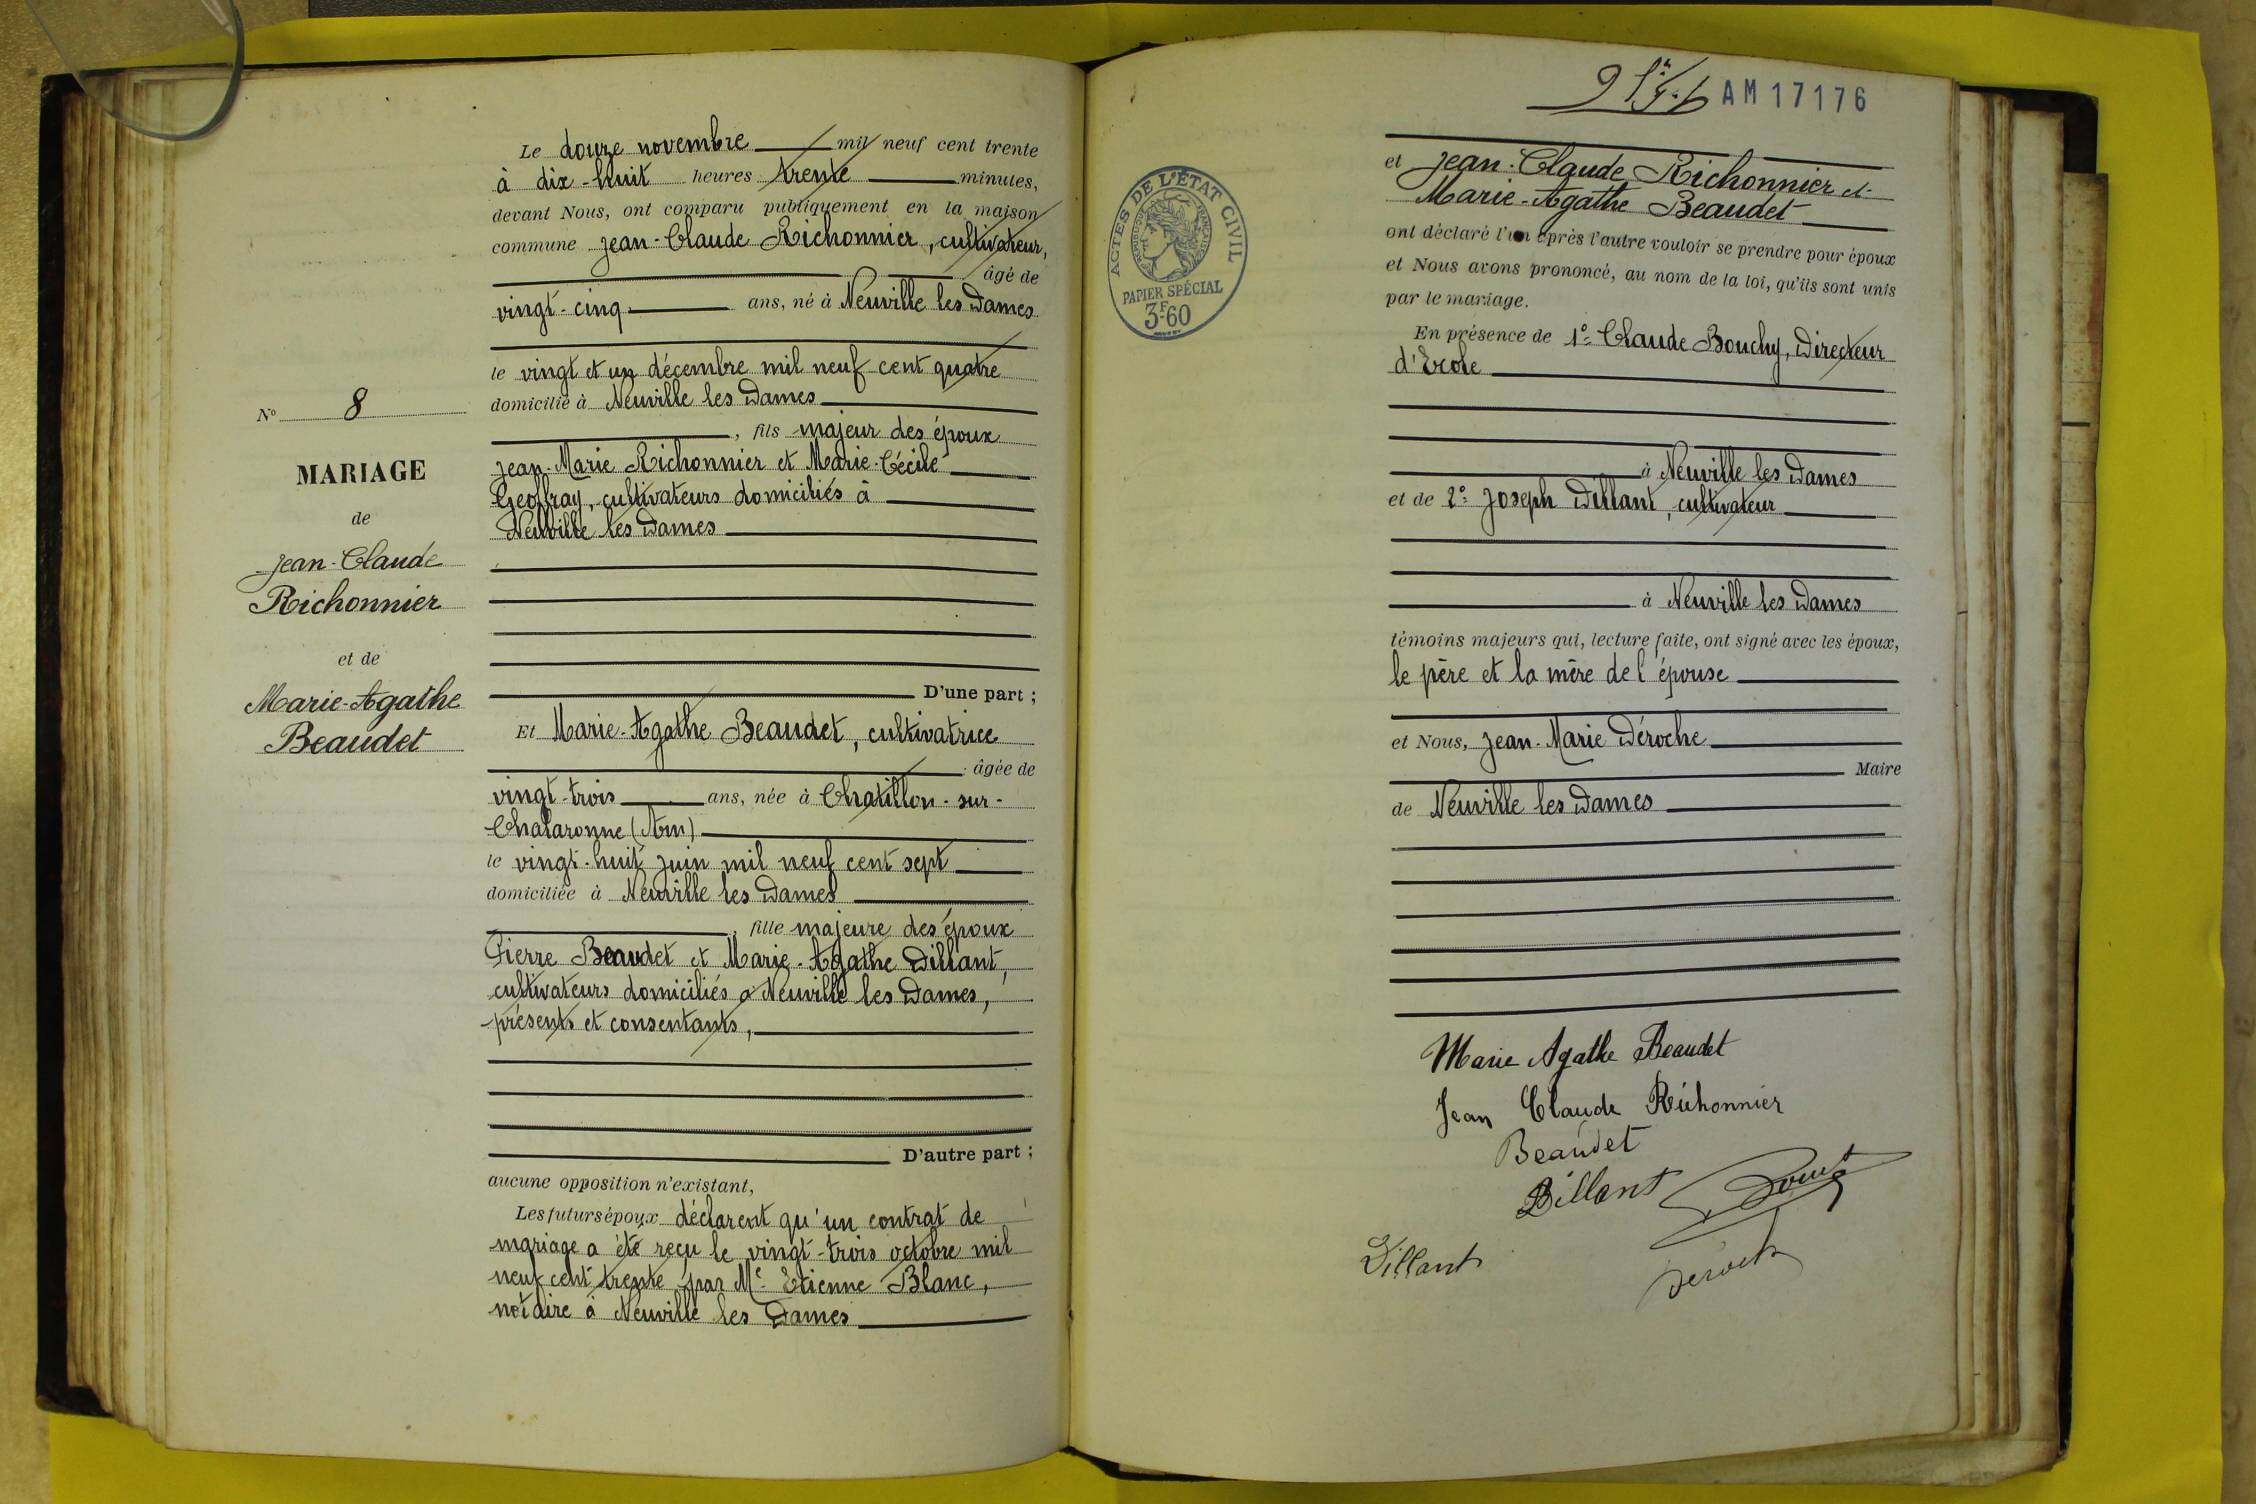 Le douze novembre mil neuf cent trente
à dix-huit heures trente minutes,
devant Nous, ont comparu publiquement en la maison
commune Jean-Claude Richonnier, cultivateur,
âgé de
vingt-cinq ans, né à Neuville les Dames
le vingt et un décembre mil neuf cent quatre
domicilié à Neuville les Dames
, fils majeur des époux
Jean-Marie Richonnier et Marie-Cécile
Geoffray, cultivateurs domiciliés à
Neuville les Dames
D'une part ;
Et Marie-Agathe Beaudet, cultivatrice
âgée de
vingt-trois ans, née à Chatillon-sur-
Chalaronne (Ain)
le vingt-huit juin mil neuf cent sept
domiciliée à Neuville les Dames
, fille majeure des époux
Pierre Beaudet et Marie-Agathe Dillant,
cultivateurs domiciliés à Neuville les Dames,
présents et consentants,
D'autre part ;
aucune opposition n'existant,
Les futurs époux déclarent qu'un contrat de
mariage a été reçu le vingt-trois octobre mil
neuf cent trente par Me Etienne Blanc,
notaire à Neuville les Dames
No 8
MARIAGE
de
Jean-Claude
Richonnier
et de
Marie-Agathe
Beaudet
AM 17176
ACTES DE L'ÉTAT CIVIL
RÉPUBLIQUE FRANÇAISE
PAPIER SPÉCIAL
3F60
et Jean-Claude Richonnier et
Marie-Agathe Beaudet
ont déclaré l'un après l'autre vouloir se prendre pour époux
et Nous avons prononcé, au nom de la loi, qu'ils sont unis
par le mariage.
En présence de 1° Claude Bouchy, Directeur
d'Ecole
à Neuville les Dames
et de 2° Joseph Dillant, cultivateur
à Neuville les Dames
témoins majeurs qui, lecture faite, ont signé avec les époux,
le père et la mère de l'épouse
et Nous, Jean-Marie Déroche
Maire
de Neuville les Dames
Marie Agathe Beaudet
Jean Claude Richonnier
Beaudet
Dillant
Dillant